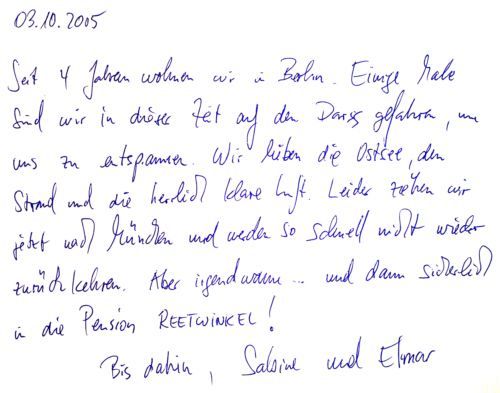 03.10.2005
Seit 4 Jahren wohnen wir in Berlin. Einige Male
sind wir in dieser Zeit auf den Darss gefahren, um
uns zu entspannen. Wir lieben die Ostsee, den
Strand und die herrlich klare Luft. Leider ziehen wir
jetzt nach München und werden so schnell nicht wieder
zurückkehren. Aber irgendwann... und dann sicherlich
in die Pension REETWINKEL!
Bis dahin, Sabine und Elmar